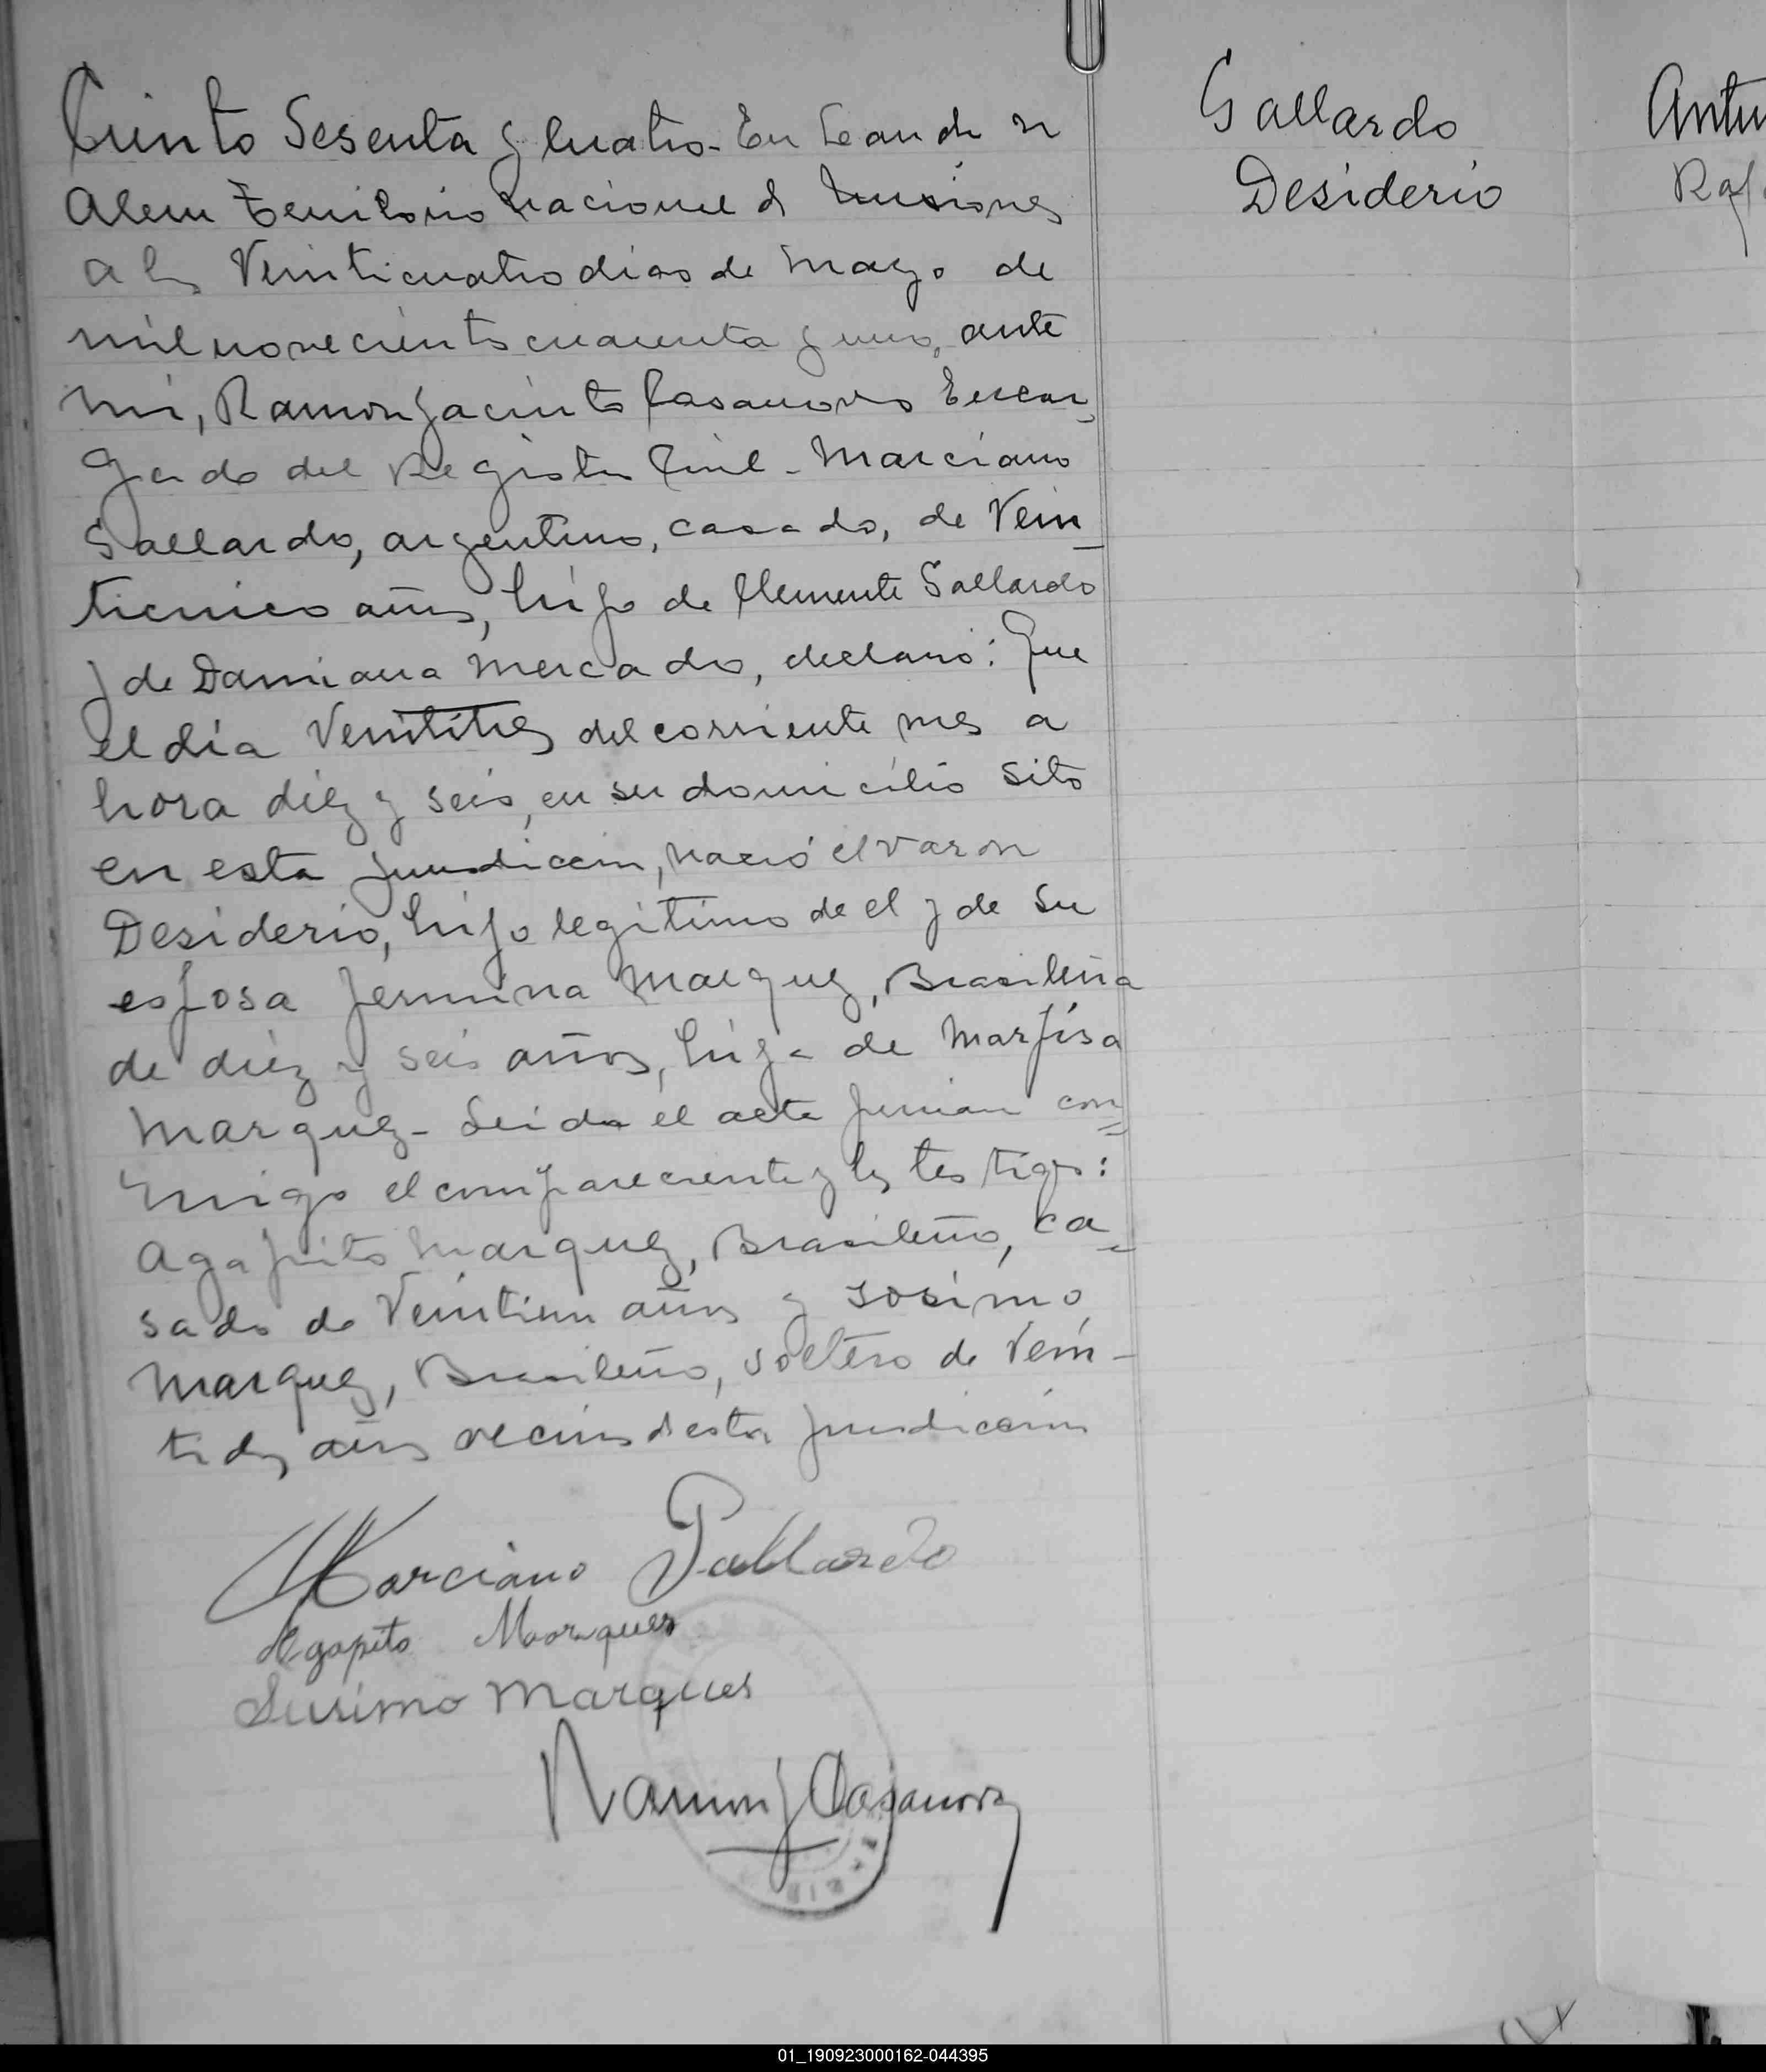 Ciento Sesenta y Cuatro - En Leandro N
Alem Territorio Nacional de Misiones
a los Veinticuatro dias de Mayo de
mil novecientos cuarenta y uno, ante
mi, Ramon Jacinto Casanova Encar
gado del Registro Civil - Marciano
Gallardo, argentino, casado, de Vein
ticinco años, hijo de Clemente Gallardo
y de Damiana Mercado, declaró: Que
el día Veintitres del corriente mes a
hora diez y seis, en su domicilio sito
en esta jurisdiccion, nació el varon
Desiderio, hijo legitimo de el y de su
esposa Jermina Marquez, Brasileña
de diez y seis años, hija de Marfisa
Marquez - Leida el acta firman con
migo el compareciente y los testigos:
Agapito Marquez, Brasileño, ca
sado de Veintiun años y Sosimo
Marquez, Brasileño, soltero de Vein-
tidos años vecinos de esta jurisdiccion
Marciano Gallardo
Agapito Marques
Susimo Marques
Ramon J Casanova
Gallardo
Desiderio
Antu
Rafa
01_190923000162-044395